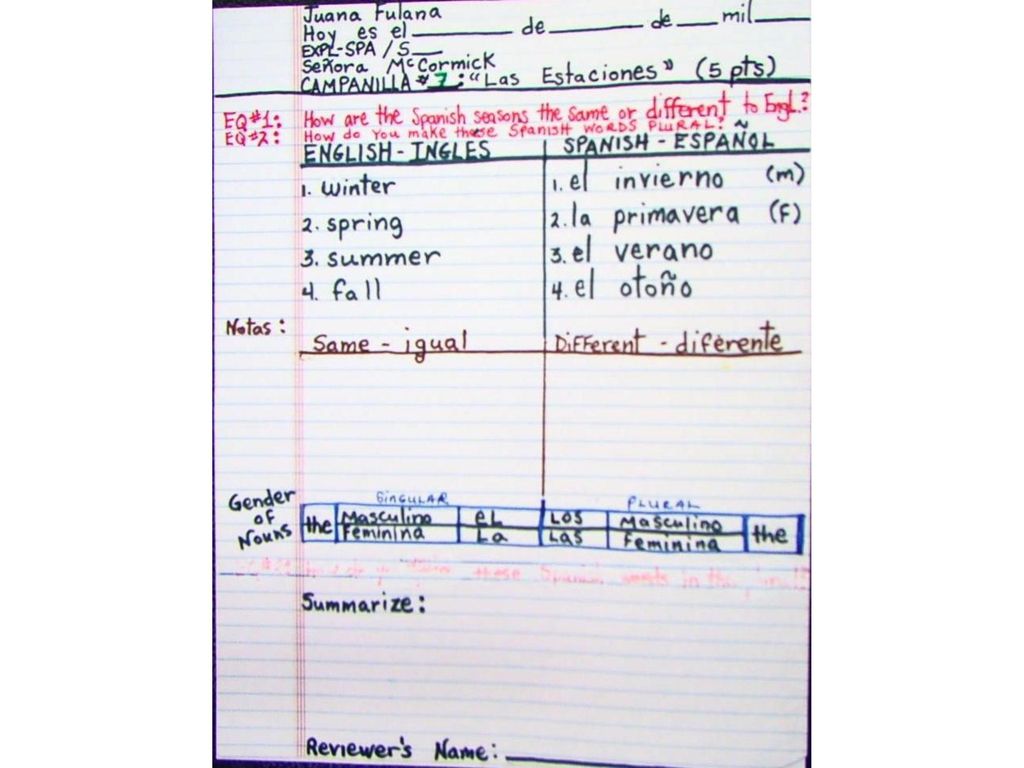 Juana Fulana
Hoy es el________ de________ de___ mil____
EXPL-SPA / S___
Señora McCormick
CAMPANILLA #7: "Las Estaciones" (5 pts)
EQ#1: How are the Spanish seasons the same or different to Engl.?
EQ#2: How do you make these Spanish words plural?
ENGLISH - INGLÉS SPANISH - ESPAÑOL
1. winter 1. el invierno (m)
2. spring 2. la primavera (F)
3. summer 3. el verano
4. fall 4. el otoño
Notas: Same - igual Different - diferente
Gender of Nouns
SINGULAR PLURAL
the Masculino EL LOS Masculino the
Feminina La LAS Feminina
these Spanish words in the
Summarize:
Reviewer's Name:________